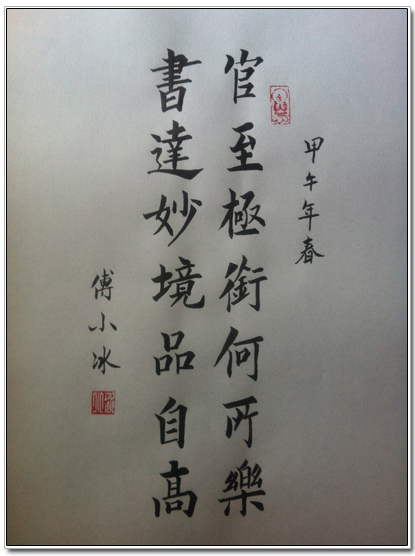 甲午年春
官至極銜何所樂
書達妙境品自高
傅小冰